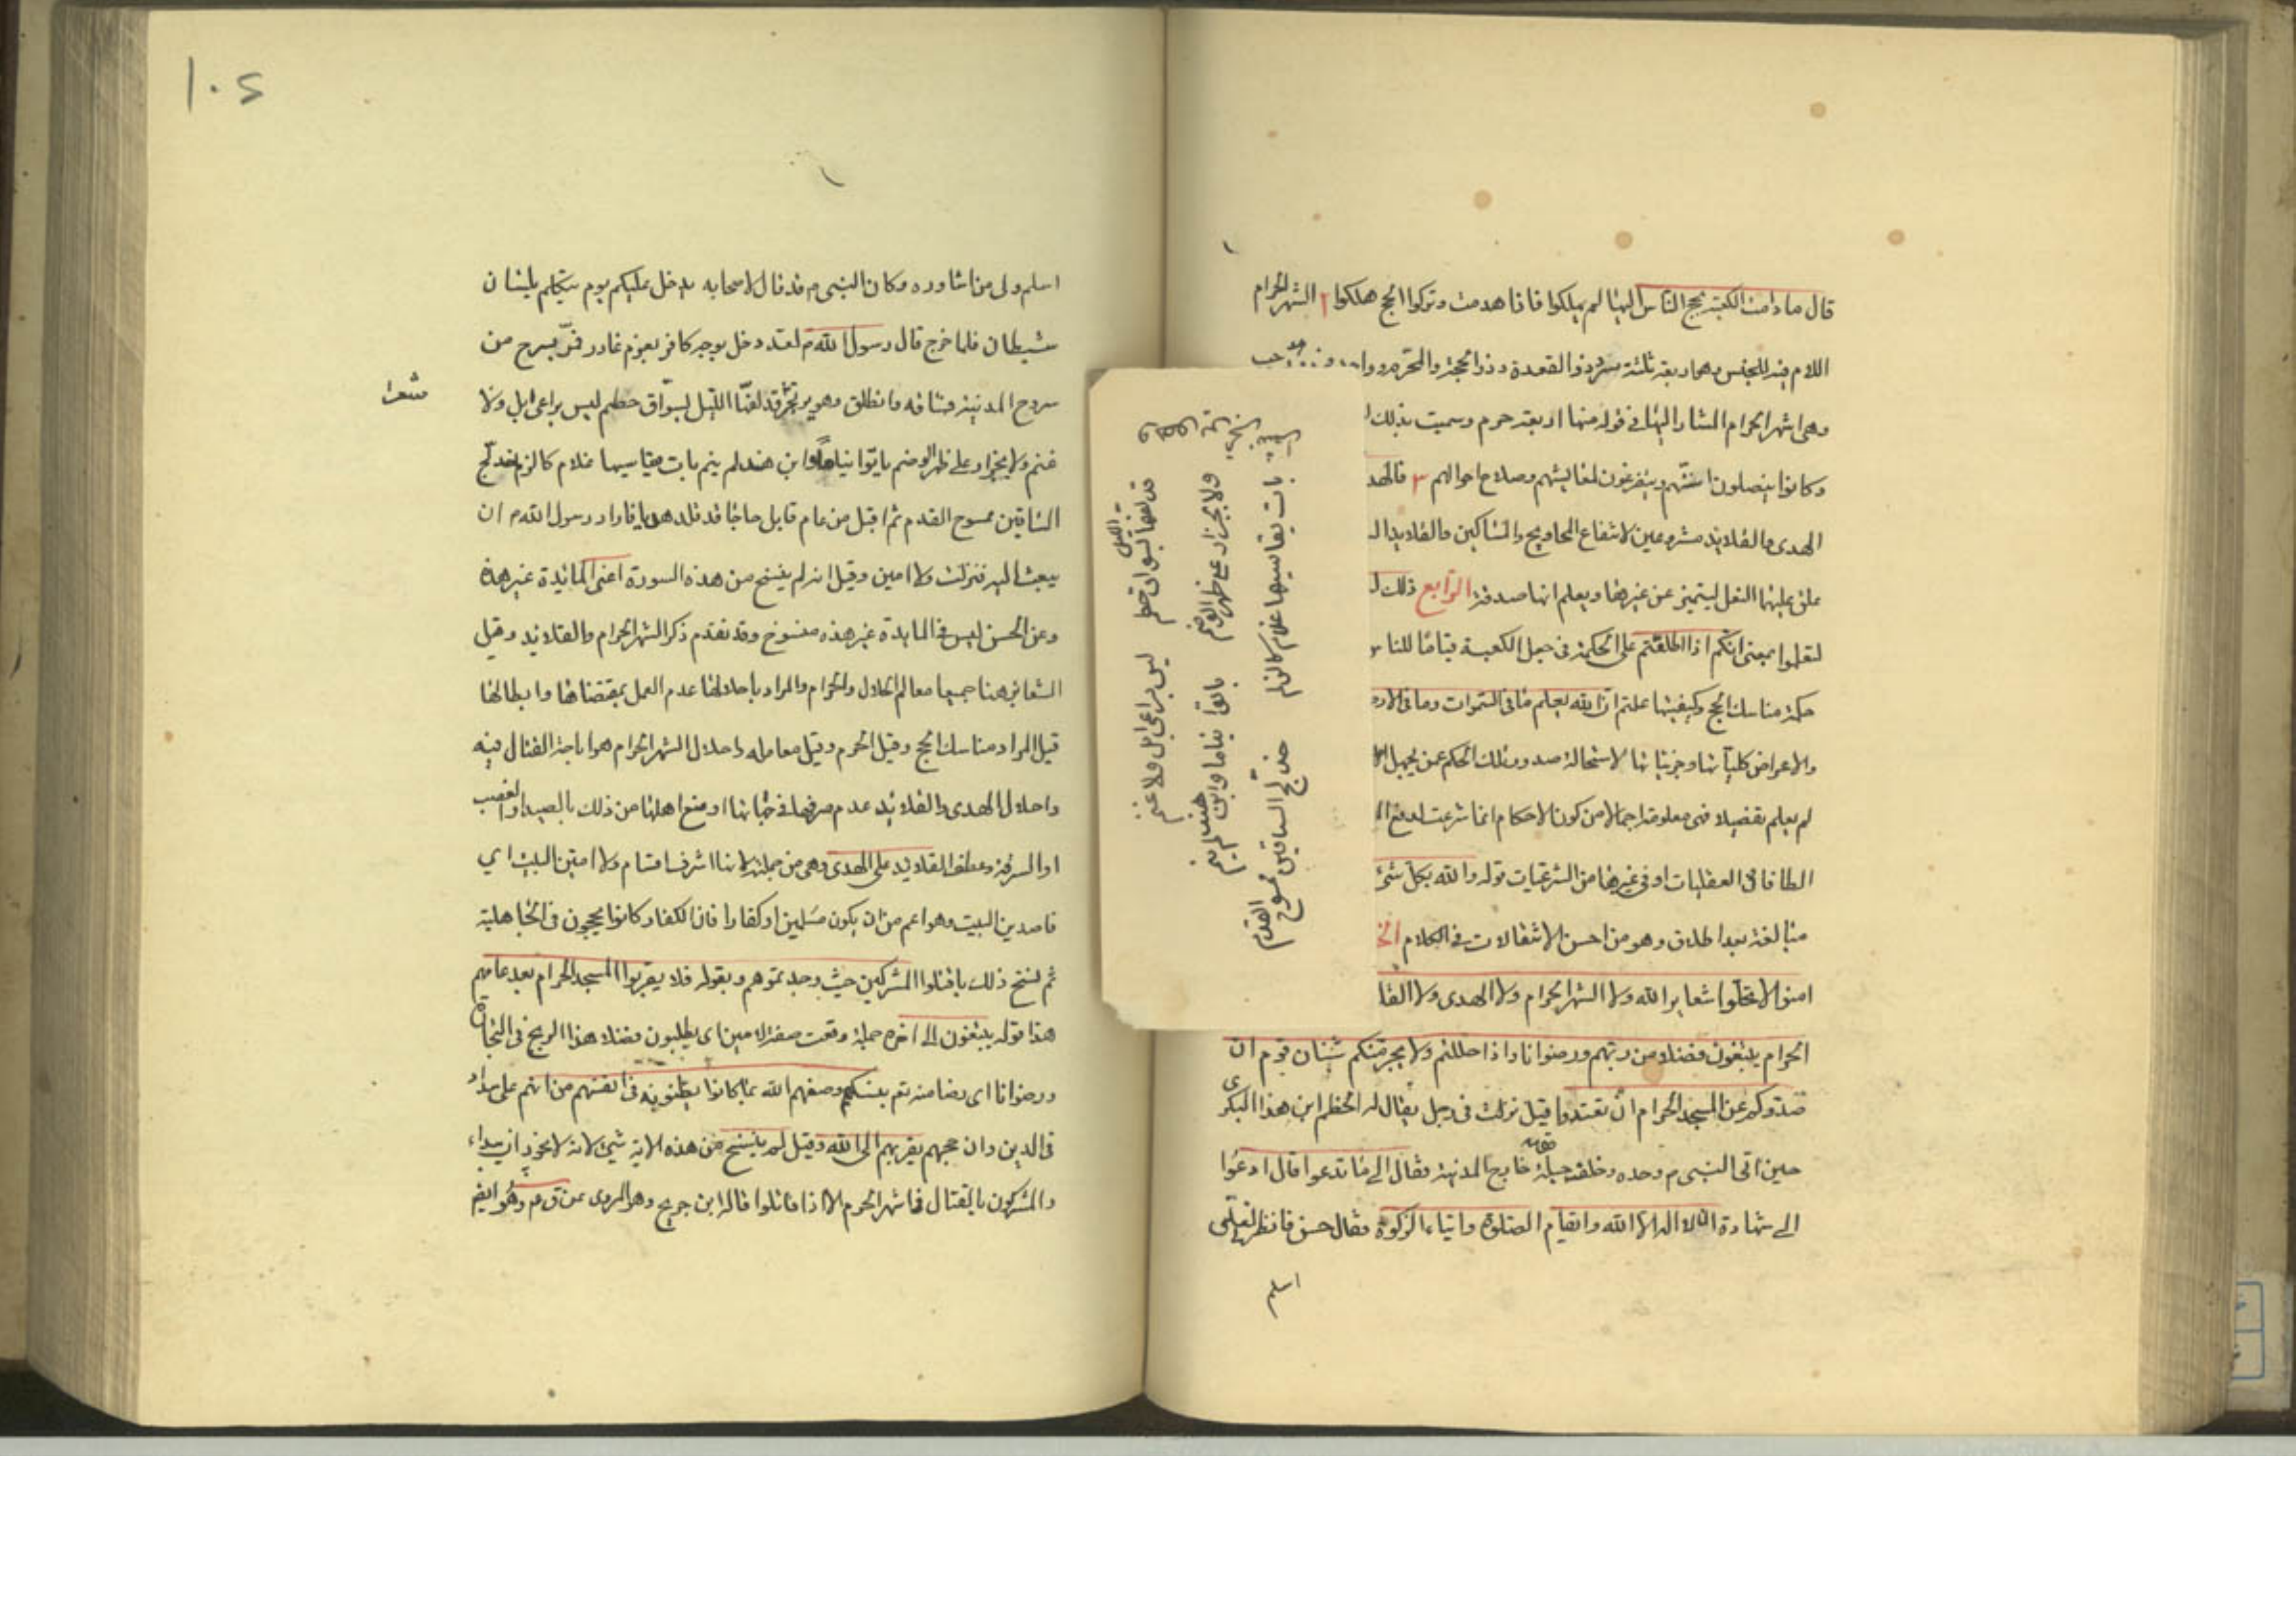 قال ما دامت الكعبة يحج الناس اليها لم يهلكوا فاذا هدمت وتركوا الحج هلكوا ٢ الشهر الحرام
اللام فيه للجنس وهى اربعة ثلثة سرد ذو القعدة وذو الحجة والمحرم وواحد فرد رجب
وهى اشهر الحرام المشار اليها فى قوله منها اربعة حرم وسميت بذلك
وكانوا ينصلون اسنتهم ويتفرغون لمعايشهم وصلاح احوالهم ٣ فالهد
الهدى والقلايد مشروعين لانتفاع المحاويج والمساكين والقلايد ال
علق عليها النعل ليتميز عن غيرها ويعلم انها صدقة الرابع ذلك ل
لتعلموا بمعنى انكم اذا اطلعتم على الحكمة فى جعل الكعبة قياما للناس
حكمة مناسك الحج وكيفيتها علمتم ان الله يعلم ما فى السموات وما فى الارض
والاعراض كلياتها وجزئياتها لاستحالة صدور تلك الحكم عمن يجهل
لم يعلم تفصيلا فهى معلومة اجمالا من كون الاحكام انما شرعت لدفع ال
الطافا فى العقليات او فى غيرها من الشرعيات قوله والله بكل شئ
مبالغة بعد اطلاق وهو من احسن الانتقالات فى الكلام
امنوا لا تحلوا شعاير الله ولا الشهر الحرام ولا الهدى ولا القلا
الحرام يبتغون فضلا من ربهم ورضوانا واذا حللتم ولا يجرمنكم شنان قوم ان
صدوكم عن المسجد الحرام ان تعتدوا قيل نزلت فى رجل يقال له الحطم ابن هند البكرى
حين اتى النبى م وحده وخلف خيله خارج المدينة فقال الى ما تدعوا قال ادعوا
الى شهادة ان لا اله الا الله واقام الصلوة وايتاء الزكوة فقال حسن فانظرنى لعلى
اسلم
قد لفها الليل لسواق حطم ليس براعى ابل ولا غنم
ولا بجزار على ظهر الوضم باتوا نياما وابن هند لم ينم
بات يقاسيها غلام كالزلم خدلج الساقين ممسوح القدم
١٠٤
اسلم ولى من اشاوره وكان النبى م قد قال لاصحابه يدخل عليكم يوم يتكلم بلسان
شيطان فلما خرج قال رسول الله م لقد دخل بوجه كافر بعزم غادر فمر بسرح من
سروح المدينة فساقه وانطلق وهو يرتجز قد لفها الليل بسواق حطم ليس براعى ابل ولا
غنم ولا بجزار على ظهر الوضم باتوا نياما وابن هند لم ينم بات يقاسيها غلام كالزلم خدلج
الساقين ممسوح القدم ثم اقبل من عام قابل حاجا قد قلد هديا فاراد رسول الله م ان
يبعث اليه فنزلت ولا امين وقيل انه لم ينسخ من هذه السورة اعنى المائدة غير هذه
وعن الحسن ليس فى المايدة غير هذه منسوخ وقد تقدم ذكر الشهر الحرام والقلايد وقيل
الشعاير هنا جميعا معالم الحلال والحرام والمراد باحلالها عدم العمل بمقتضاها وابطالها
قيل المراد مناسك الحج وقيل الحرم وقيل معالمه واحلال الشهر الحرام هو اباحة القتال فيه
واحلال الهدى والقلائد عدم صرفها فى جهاتها او منع اهلها من ذلك بالصيد او الغصب
او السرقة وعطف القلايد على الهدى وهى من جملته لانها اشرف اقسام ولا امين البيت اي
قاصدين البيت وهو اعم من ان يكون مسلمين او كفارا فان الكفار كانوا يحجون فى الجاهلية
ثم نسخ ذلك باقتلوا المشركين حيث وجدتموهم وبقوله فلا يقربوا المسجد الحرام بعد عامهم
هذا قوله يبتغون الى اخره جملة وقعت صفة لامين اى يطلبون فضلا هذا الربح فى التجارة
ورضوانا اى رضا منه وصفهم الله بما كانوا يظنونه فى انفسهم من انهم على سداد
فى الدين وان حجهم يقربهم الى الله وقيل لم ينسخ من هذه الاية شئ لانه لا يجوز ان يبداء
والمشركون بالقتال فى اشهر الحرم الا اذا قاتلوا قاله ابن جريج وهو المروى عن ق م وهو ايضا